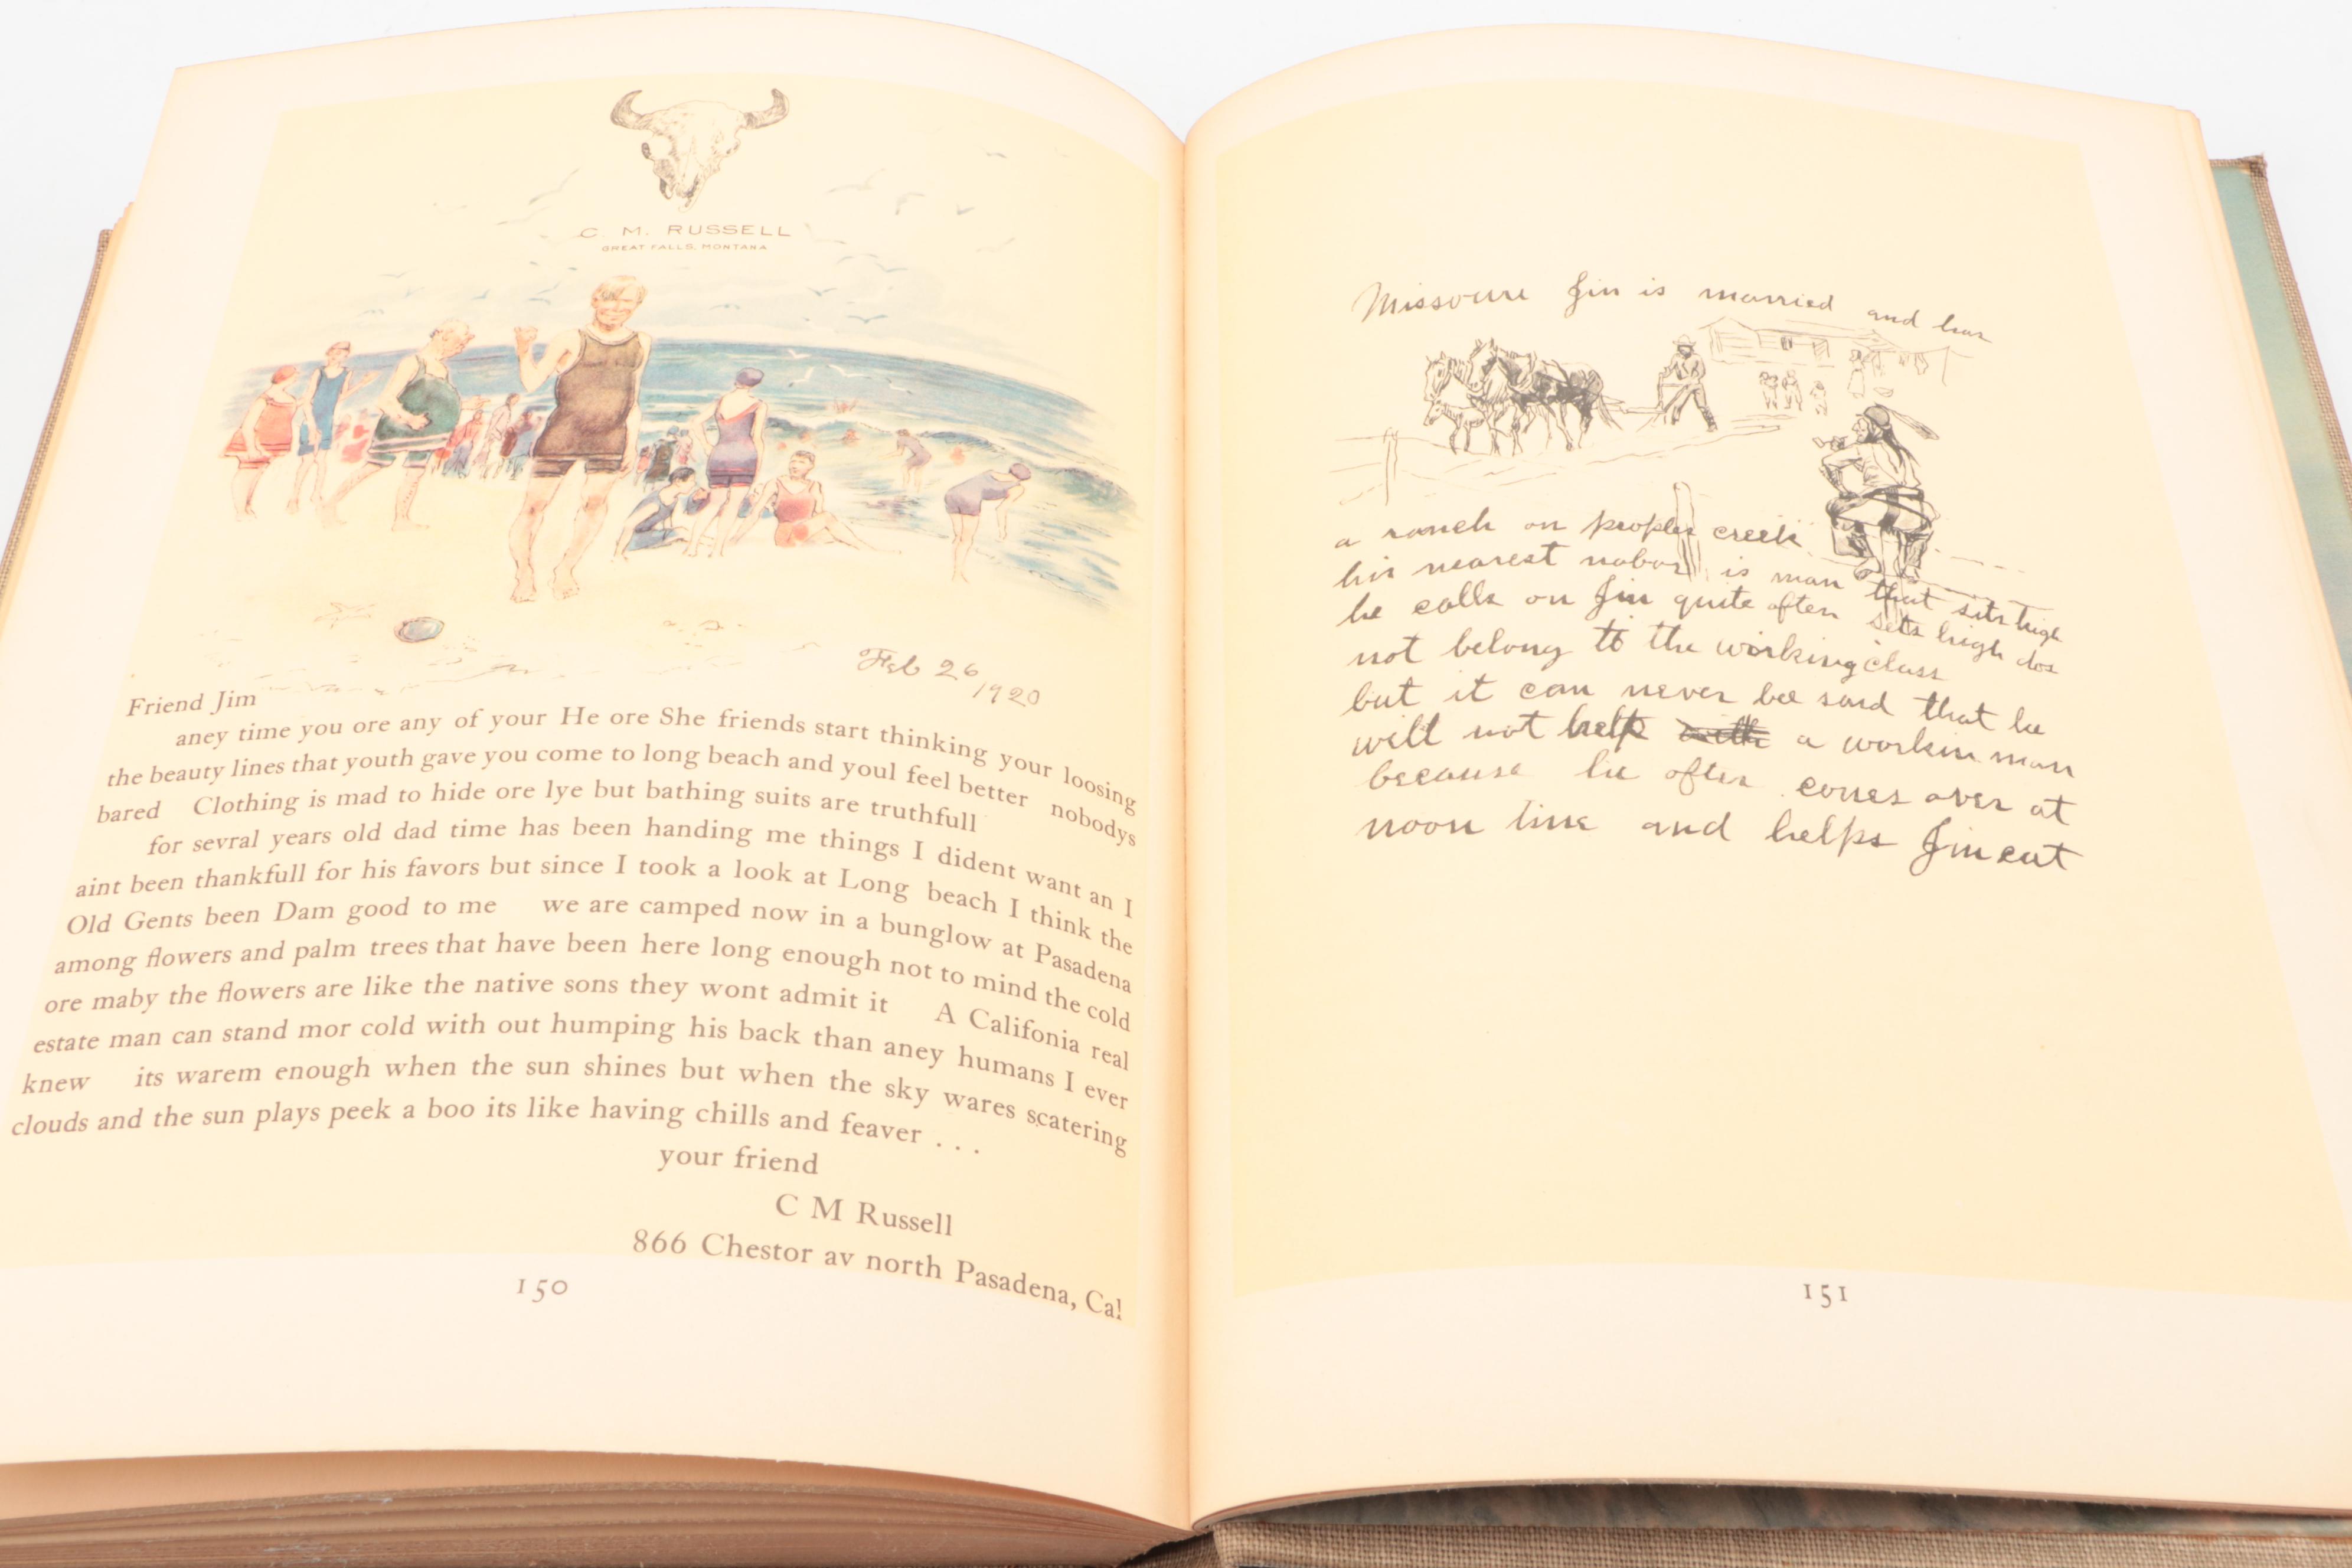 C. M. RUSSELL
GREAT FALLS, MONTANA
Feb 26
1920
Friend Jim
aney time you ore any of your He ore She friends start thinking your loosing
the beauty lines that youth gave you come to long beach and youl feel better nobodys
bared Clothing is mad to hide ore lye but bathing suits are truthfull
for sevral years old dad time has been handing me things I dident want an I
aint been thankfull for his favors but since I took a look at Long beach I think the
Old Gents been Dam good to me we are camped now in a bunglow at Pasadena
among flowers and palm trees that have been here long enough not to mind the cold
ore maby the flowers are like the native sons they wont admit it A Califonia real
estate man can stand mor cold with out humping his back than aney humans I ever
knew its warem enough when the sun shines but when the sky wares scatering
clouds and the sun plays peek a boo its like having chills and feaver . . .
your friend
C M Russell
866 Chestor av north Pasadena, Cal
150
Missoure Jim is married and has
a ranch on peoples creek
his nearest nabor is man that sits high
he calls on Jim quite often sets high dos
not belong to the working class
but it can never bee said that he
will not help with a workin man
because he often comes over at
noon time and helps Jim eat
151